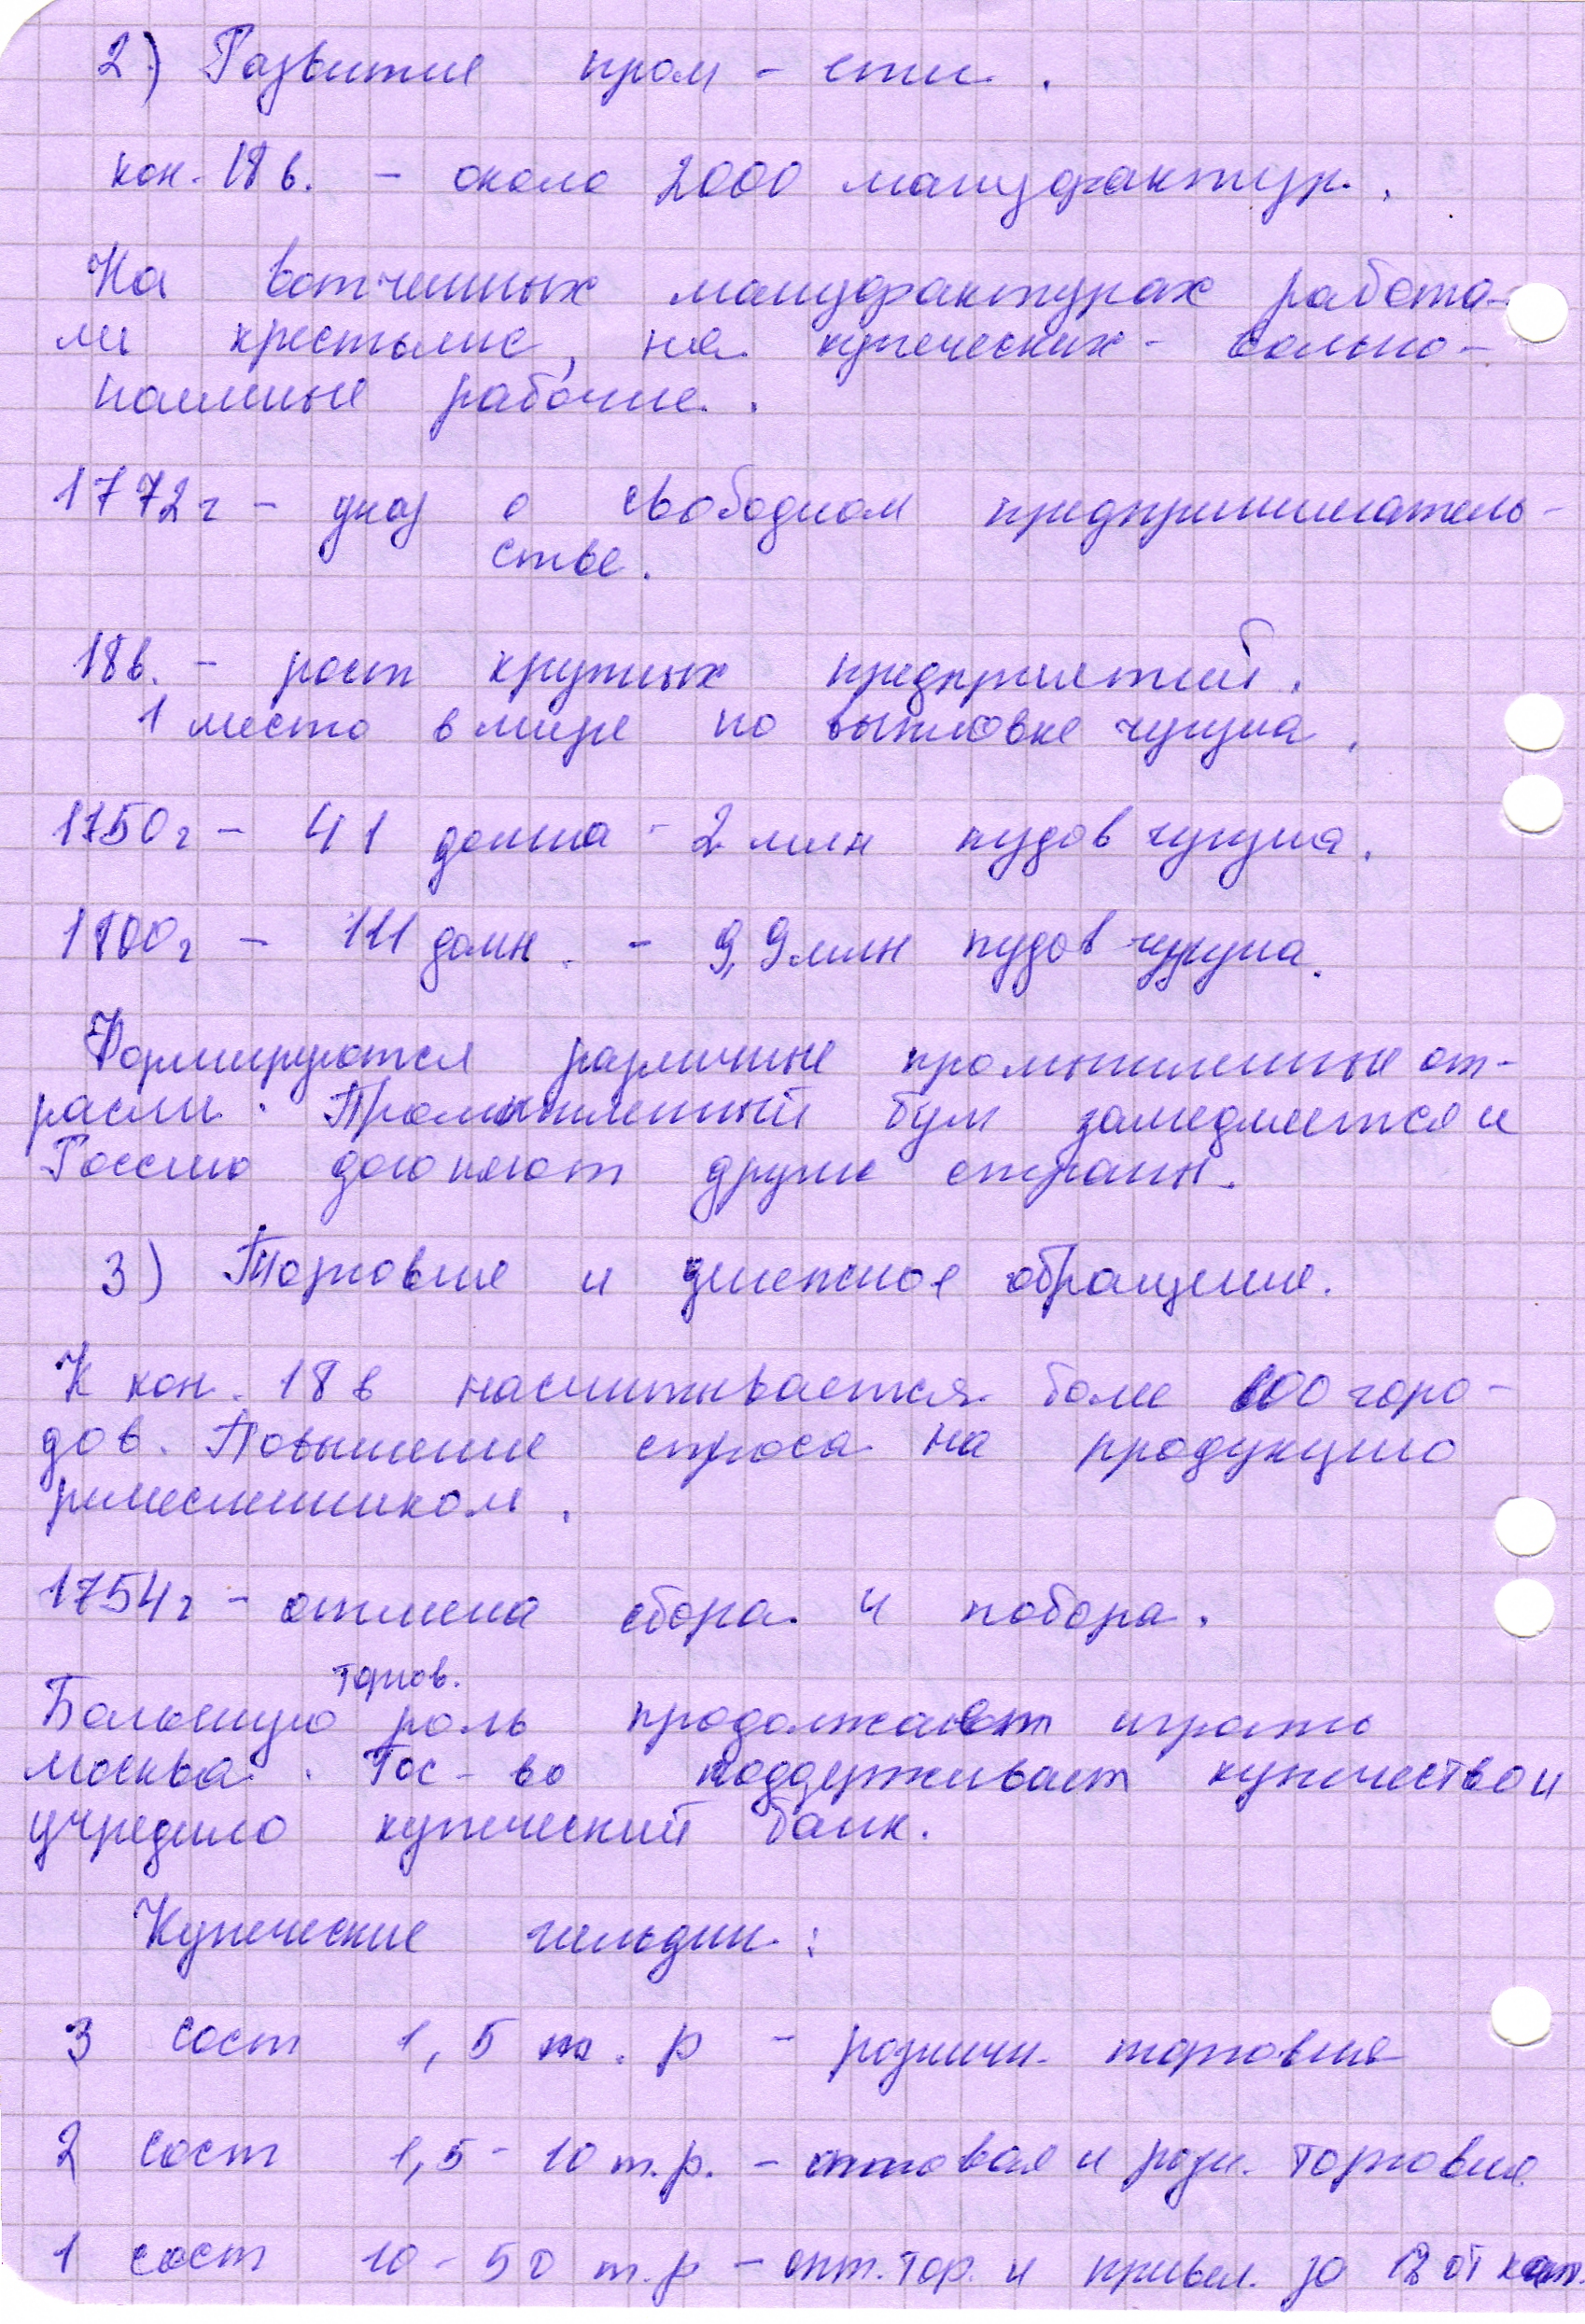 2) Развитие пром-сти.
кон. 18 в. - около 2000 мануфактур.
На вотченных мануфактурах работа-
ли крестьяне, на купеческих - вольно-
наемные рабочие.
1772 г - указ о свободном предприниматель-
стве.
18 в. - рост крупных предприятий.
1 место в мире по выплавке чугуна.
1750 г - 41 домна - 2 млн пудов чугуна.
1800 г - 111 домн. - 9,9 млн пудов чугуна.
Формируются различные промышленные от-
расли. Промышленный бум замедляется и
Россию догоняют другие страны.
3) Торговля и денежное обращение.
К кон. 18 в насчитывается более 600 горо-
дов. Повышение спроса на продукцию
ремесленником.
1754 г - отмена сбора и побора.
торгов.
Большую роль продолжает играть
москва. Гос-во поддерживает купечество и
учредило купеческий банк.
Купеческие гильдии:
3 сост 1,5 т. р - розничн. торговля
2 сост 1,5 - 10 т.р. - оптовая и розн. торговля
1 сост 10 - 50 т.р - опт. тор. и привел. за от кап.